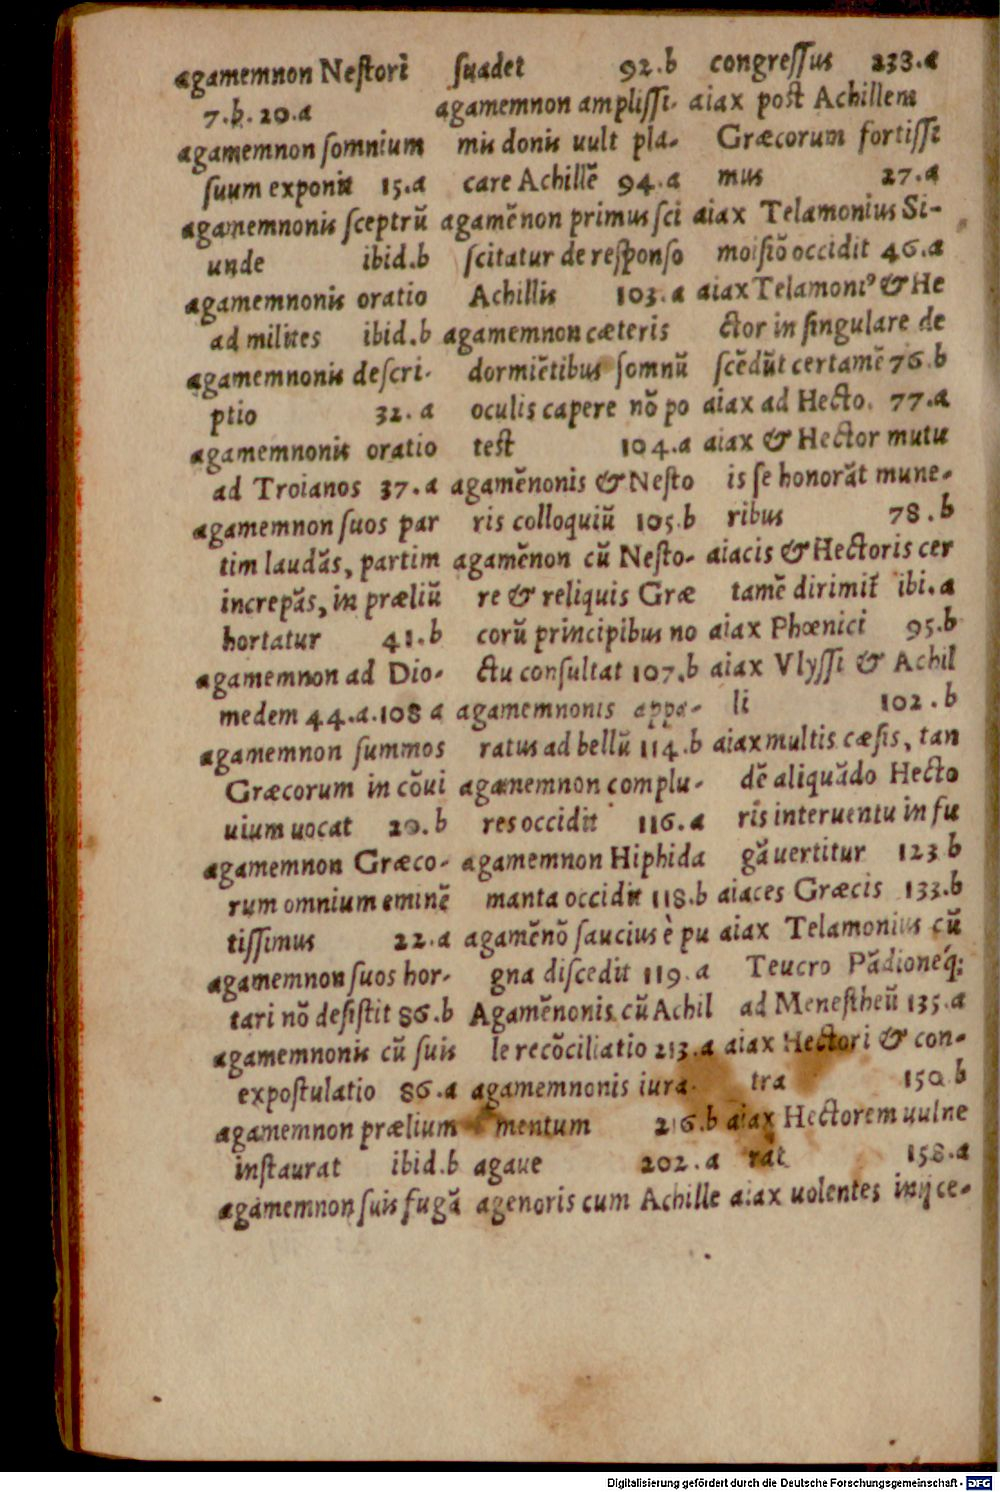 agamemnon Nestori
7.b.20.a
agamemnon somnium
suum exponit 15.a
agamemnonis sceptrũ
unde ibid.b
agamemnonis oratio
ad milites ibid.b
agamemnonis descri-
ptio 32.a
agamemnonis oratio
ad Troianos 37.a
agamemnon suos par
tim laudãs, partim
increpãs, in præliũ
hortatur 41.b
agamemnon ad Dio-
medem 44.a.108 a
agamemnon summos
Græcorum in cõui
uium uocat 20.b
agamemnon Græco-
rum omnium eminẽ
tissimus 22.a
agamemnon suos hor-
tari nõ desistit 86.b
agamemnonis cũ suis
expostulatio 86.a
agamemnon prælium
instaurat ibid.b
agamemnon suis fugã
suadet 92.b
agamemnon amplissi-
mis donis uult pla-
care Achillẽ 94.a
agamẽnon primus sci
scitatur de responso
Achillis 103.a
agamemnon cæteris
dormiẽtibus somnũ
oculis capere nõ po
test 104.a
agamẽnonis & Nesto
ris colloquiũ 105.b
agamẽnon cũ Nesto-
re & reliquis Græ
corũ principibus no
ctu consultat 107.b
agamemnonis appa-
ratus ad bellũ 114.b
agamemnon complu-
res occidit 116.a
agamemnon Hiphida
manta occidit 118.b
agamẽnõ saucius è pu
gna discedit 119.a
Agamẽnonis cũ Achil
le recõciliatio 213.a
agamemnonis iura-
mentum 216.b
agaue 202.a
agenoris cum Achille
congressus 233.a
aiax post Achillem
Græcorum fortissi
mus 27.a
aiax Telamonius Si-
moisiõ occidit 46.a
aiax Telamoniꝰ & He
ctor in singulare de
scẽdũt certamẽ 76.b
aiax ad Hecto. 77.a
aiax & Hector mutu
is se honorãt mune-
ribus 78.b
aiacis & Hectoris cer
tamẽ dirimit̃ ibi.a
aiax Phœnici 95.b
aiax Vlyssi & Achil
li 102.b
aiax multis cæsis, tan
dẽ aliquãdo Hecto
ris interuentu in fu
gã uertitur 123 b
aiaces Græcis 133.b
aiax Telamonius cũ
Teucro Pãdioneq́;
ad Menestheũ 135.a
aiax Hectori & con-
tra 150 b
aiax Hectorem uulne
rat 158.a
aiax uolentes inijce-
Digitalisierung gefördert durch die Deutsche Forschungsgemeinschaft - DFG